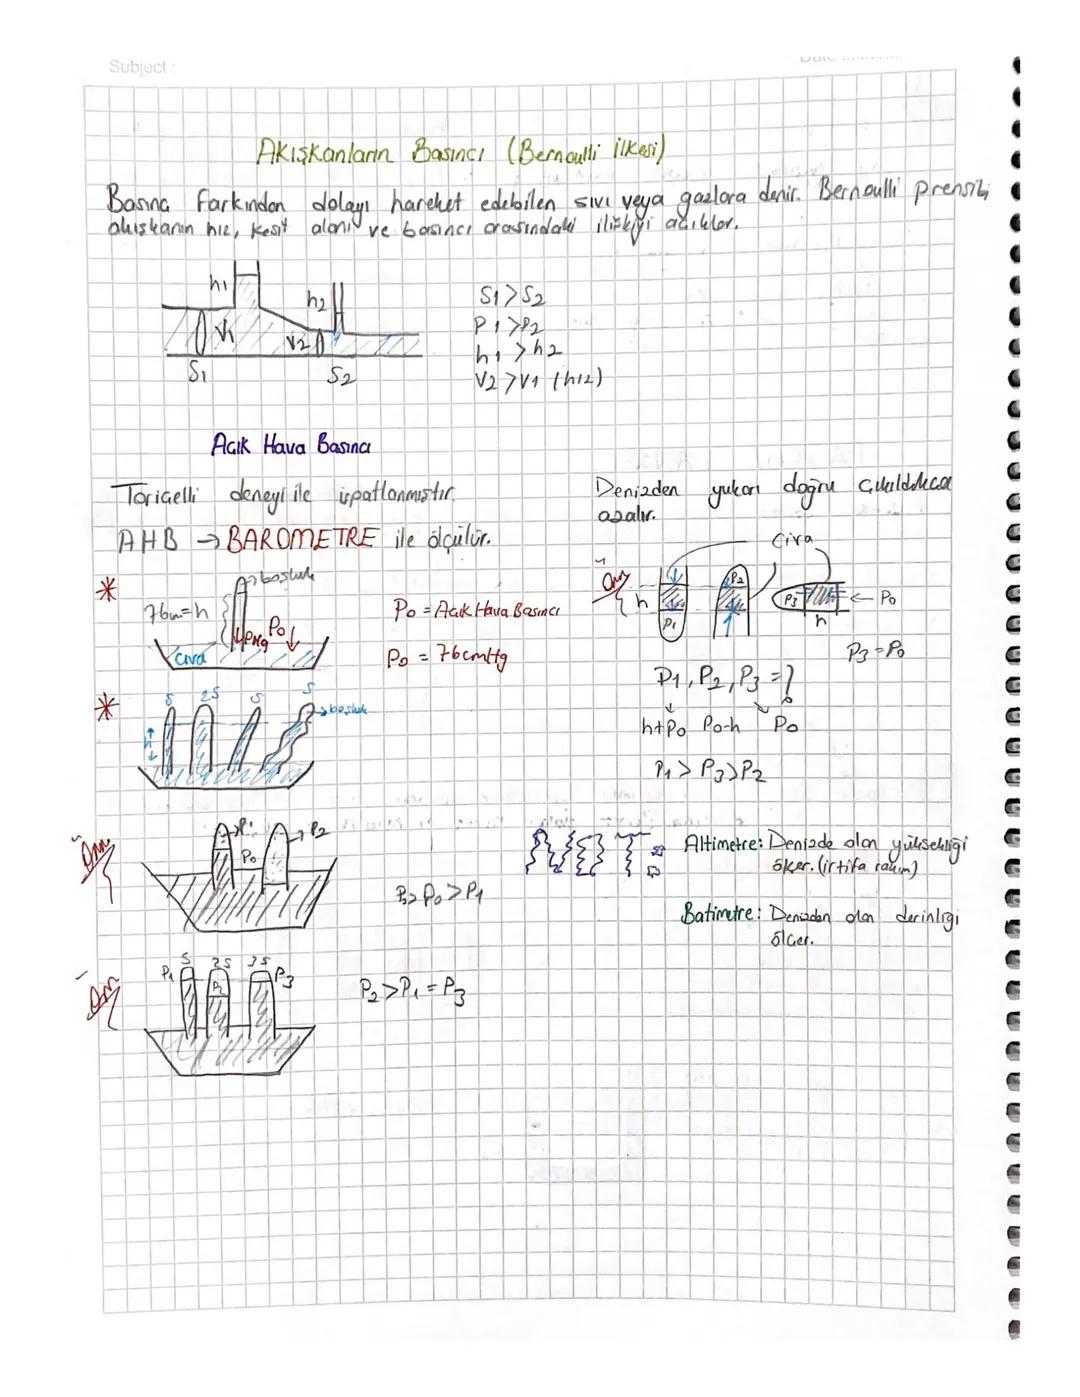 Subject :
Akışkanların Basıncı (Bernoulli İlkesi)
Basınç farkından dolayı hareket edebilen sıvı veya gazlara denir. Bernoulli prensibi,
akışkanın hız, kesit alanı ve basıncı arasındaki ilişkiyi açıklar.
h1
h2
V1
V2
S1
S2
S1>S2
P1>P2
h1>h2
V2>V1 (hız)
Açık Hava Basıncı
Toricelli deneyi ile ispatlanmıştır.
AHB → BAROMETRE ile ölçülür.
Denizden yukarı doğru çıkıldıkca
azalır.
* 76cm=h
boşluk
PHg
P0
civa
P0 = Açık Hava Basıncı
P0 = 76cmHg
Örn
Civa
h
P1
P2
P3
h
← P0
P3=P0
P1, P2, P3 = ?
h+P0 P0-h P0
P1 > P3 > P2
* S 2S S S
→ boşluk
h
Örn
P1
→ P2
P0
P2>P0>P1
NOT:
Altimetre: Denizde olan yüksekliği
ölçer. (irtifa rakım)
Batimetre: Denizden olan derinliği
ölçer.
Örn
S 2S 3S
P1
P2
P3
P2>P1=P3